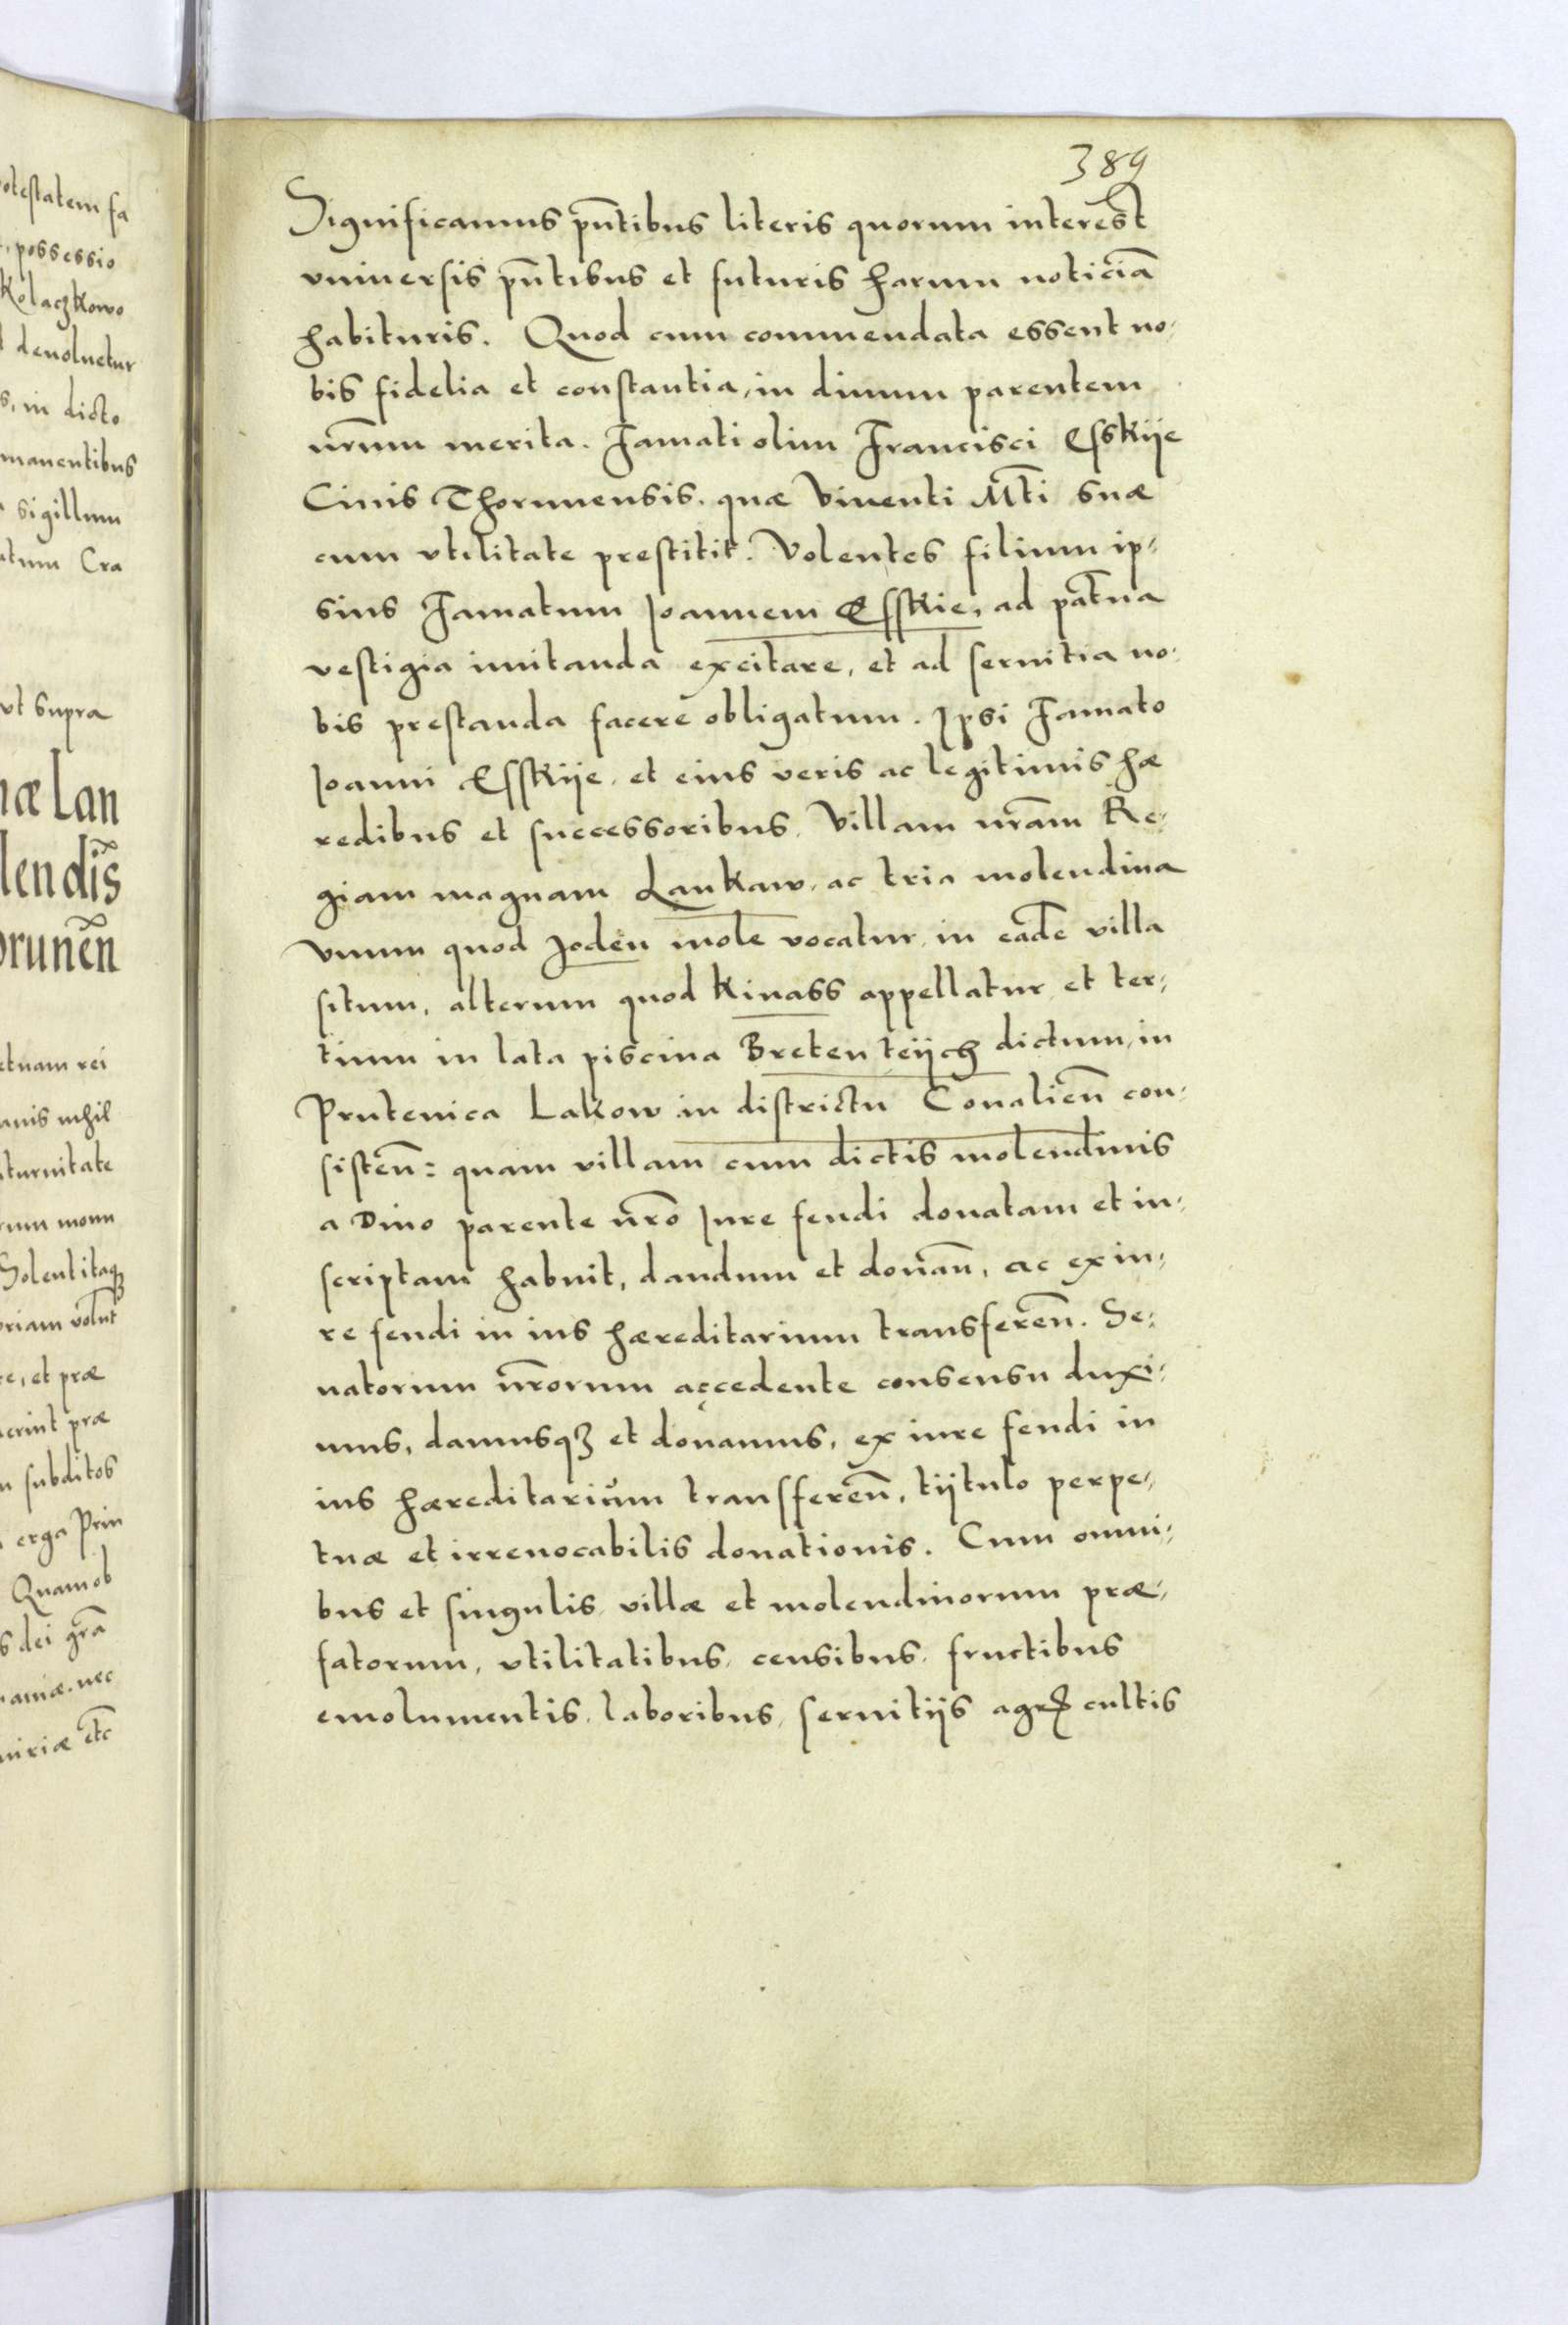 389
Significamus pñtibus literis quorum interest
vniuersis pñtibus et futuris harum noticiã
habituris. Quod cum commendata essent no-
bis fidelia et constantia, in diuum parentem
nrm̃um merita. Famati olim Francisci Esskije
Ciuis Thorunensis. quæ Viuenti Mt̃i suæ
cum vtilitate prestitit. Volentes filium ip-
sius Famatum Joannem Esskie, ad pat̃na
vestigia imitanda excitare, et ad seruitia no-
bis prestanda facere obligatum. Ipsi Famato
Joanni Esskije. et eius veris ac legitimis hæ
redibus et successoribus. Villam nrãm Re-
giam magnam Lankaw, ac tria molendina
vnum quod Joden mole vocatur, in eadẽ villa
situm, alterum quod Kinass appellatur, et ter-
tium in lata piscina Breten teijch dictum, in
Prutenica Lakow in districtu Coualien̄ con-
sisten̄: quam villam cum dictis molendinis
a Diuo parente nr̃o Jure feudi donatam et in-
scriptam habuit, dandum et donan̄, ac ex iu-
re feudi in ius hæreditarium transferen̄. Se-
natorum nr̃orum accedente consensu duxi-
mus, damusqȝ et donamus, ex iure feudi in
ius hæreditarium transferen̄, tijtulo perpe-
tuæ et irreuocabilis donationis. Cum omni-
bus et singulis villæ et molendinorum præ-
fatorum, vtilitatibus, censibus, fructibus
emolumentis, laboribus, seruitijs agrꝝ cultis
otestatem fa
, possessio
Kolaczkowo
deuoluetur
s, in dicto
manentibus
sigillum
atum Cra
vt supra
næ Lan
lendĩs
orunen̄
etuam rei
anis nihil
turnitate
rum monu
Solent itaqȝ
oriam volũt
re, et præ
erint præ
subditos
erga Prin
Quamob
s dei grã
aniæ. nec
uiriæ etc̃